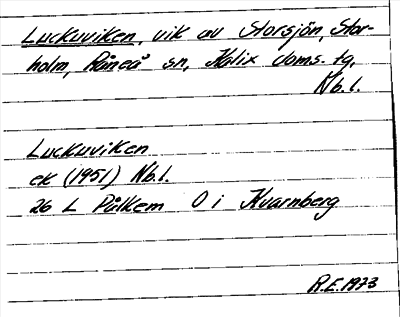 Luckuviken, vik av Storsjön, Stor-
holm, Råneå sn, Kalix doms. tg.
Nb.l.
Luckuviken
ek (1951) Nb.l.
26 L Pålkem O i Kvarnberg
R.E. 1973